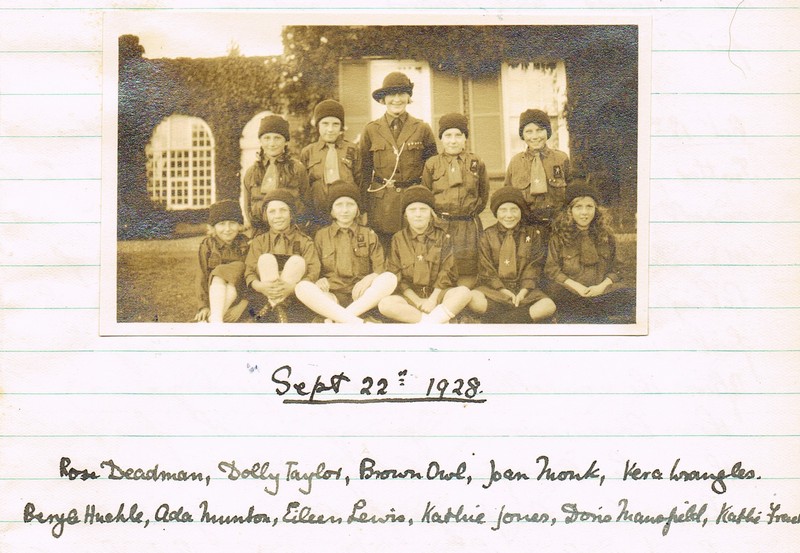 Sept 22ⁿ 1928.
Rose Deadman, Dolly Taylor, Brown Owl, Joan Monk, Vera Wrangles.
Beryl Huckle, Ada Munton, Eileen Lewis, Kathie Jones, Doris Mansfield, Kathie